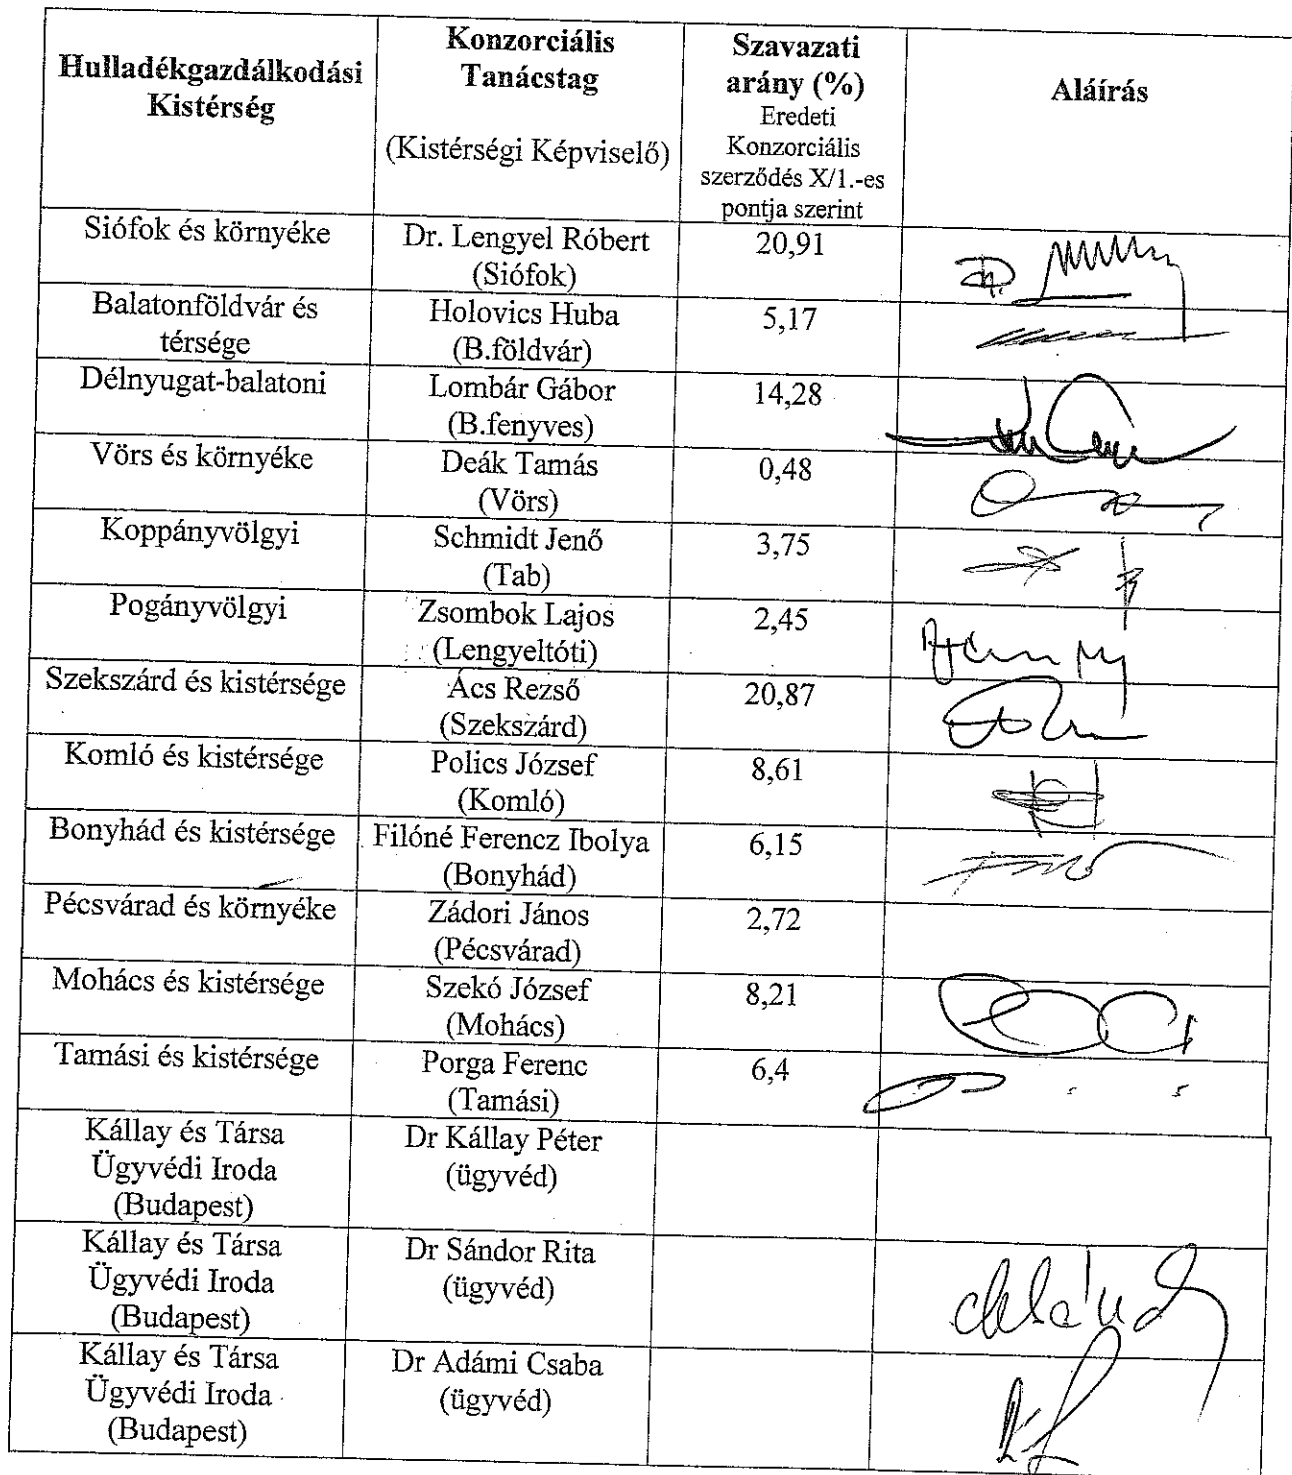 Hulladékgazdálkodási
Kistérség
Konzorciális
Tanácstag
(Kistérségi Képviselő)
Szavazati
arány (%)
Eredeti
Konzorciális
szerződés X/1.-es
pontja szerint
Aláírás
Siófok és környéke
Dr. Lengyel Róbert
(Siófok)
20,91
Balatonföldvár és
térsége
Holovics Huba
(B.földvár)
5,17
Délnyugat-balatoni
Lombár Gábor
(B.fenyves)
14,28
Vörs és környéke
Deák Tamás
(Vörs)
0,48
Koppányvölgyi
Schmidt Jenő
(Tab)
3,75
Pogányvölgyi
Zsombok Lajos
(Lengyeltóti)
2,45
Szekszárd és kistérsége
Ács Rezső
(Szekszárd)
20,87
Komló és kistérsége
Polics József
(Komló)
8,61
Bonyhád és kistérsége
Filóné Ferencz Ibolya
(Bonyhád)
6,15
Pécsvárad és környéke
Zádori János
(Pécsvárad)
2,72
Mohács és kistérsége
Szekó József
(Mohács)
8,21
Tamási és kistérsége
Porga Ferenc
(Tamási)
6,4
Kállay és Társa
Ügyvédi Iroda
(Budapest)
Dr Kállay Péter
(ügyvéd)
Kállay és Társa
Ügyvédi Iroda
(Budapest)
Dr Sándor Rita
(ügyvéd)
Kállay és Társa
Ügyvédi Iroda
(Budapest)
Dr Adámi Csaba
(ügyvéd)